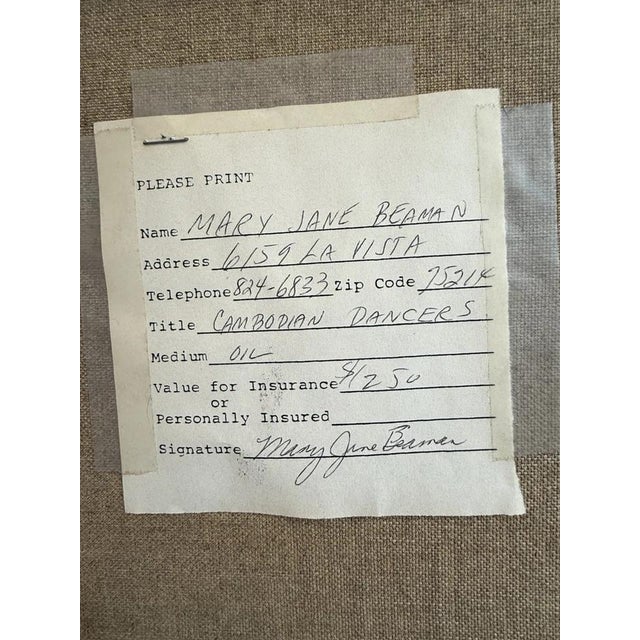 PLEASE PRINT
Name MARY JANE BEAMAN
Address 6159 LA VISTA
Telephone 824-6833 Zip Code 75214
Title CAMBODIAN DANCERS
Medium OIL
Value for Insurance $1250
or
Personally Insured
Signature Mary Jane Beaman